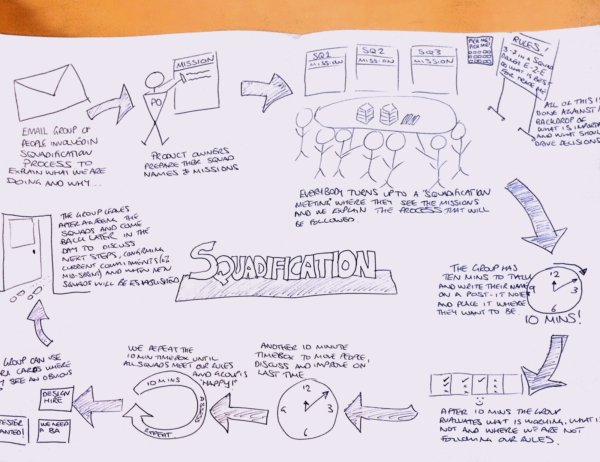 MISSION
PO
EMAIL GROUP OF
PEOPLE INVOLVED IN
SQUADIFICATION
PROCESS TO
EXPLAIN WHAT WE ARE
DOING AND WHY...
PRODUCT OWNERS
PREPARE THEIR SQUAD
NAMES & MISSIONS
SQ1
MISSION
SQ2
MISSION
SQ3
MISSION
PICK ME!
PICK ME!
RULES!
3-7 IN A SQUAD
E-2-E
DO WHAT IS BEST
FOR
EVERYBODY TURNS UP TO A 'SQUADIFICATION
MEETING' WHERE THEY SEE THE MISSIONS
AND WE EXPLAIN THE PROCESS THAT WILL
BE FOLLOWED.
ALL OF THIS IS
DONE AGAINST A
BACKDROP OF
WHAT IS IMPORTA
AND WHAT SHOUL
DRIVE DECISIONS
THE GROUP HAS
TEN MINS TO
AND WRITE THEIR NAME
ON A POST-IT NOTE
AND PLACE IT WHERE
THEY WANT TO BE.
12
3
6
9
10 MINS!
AFTER 10 MINS THE GROUP
EVALUATES WHAT IS WORKING, WHAT I
NOT AND WHERE WE ARE NOT
FOLLOWING OUR RULES.
ANOTHER 10 MINUTE
TIMEBOX TO MOVE PEOPLE,
DISCUSS AND IMPROVE ON
LAST TIME
12
3
6
9
WE REPEAT THE
10 MIN TIMEBOX UNTIL
ALL SQUADS MEET OUR RULES
AND GROUP IS
'HAPPY!'
10 MINS
ASSESS
REPEAT
GROUP CAN USE
CARDS WHERE
SEE AN OBVIOUS
DESIGN
HIRE
TESTER
WANTED!
WE NEED
A BA
THE GROUP LEAVES
AFTER AGREEING THE
SQUADS AND COME
BACK LATER IN THE
DAY TO DISCUSS
NEXT STEPS, CONFIRMING
CURRENT COMMITMENTS
AND WHEN NEW
SQUADS WILL BE ESTABLISHED
SQUADIFICATION